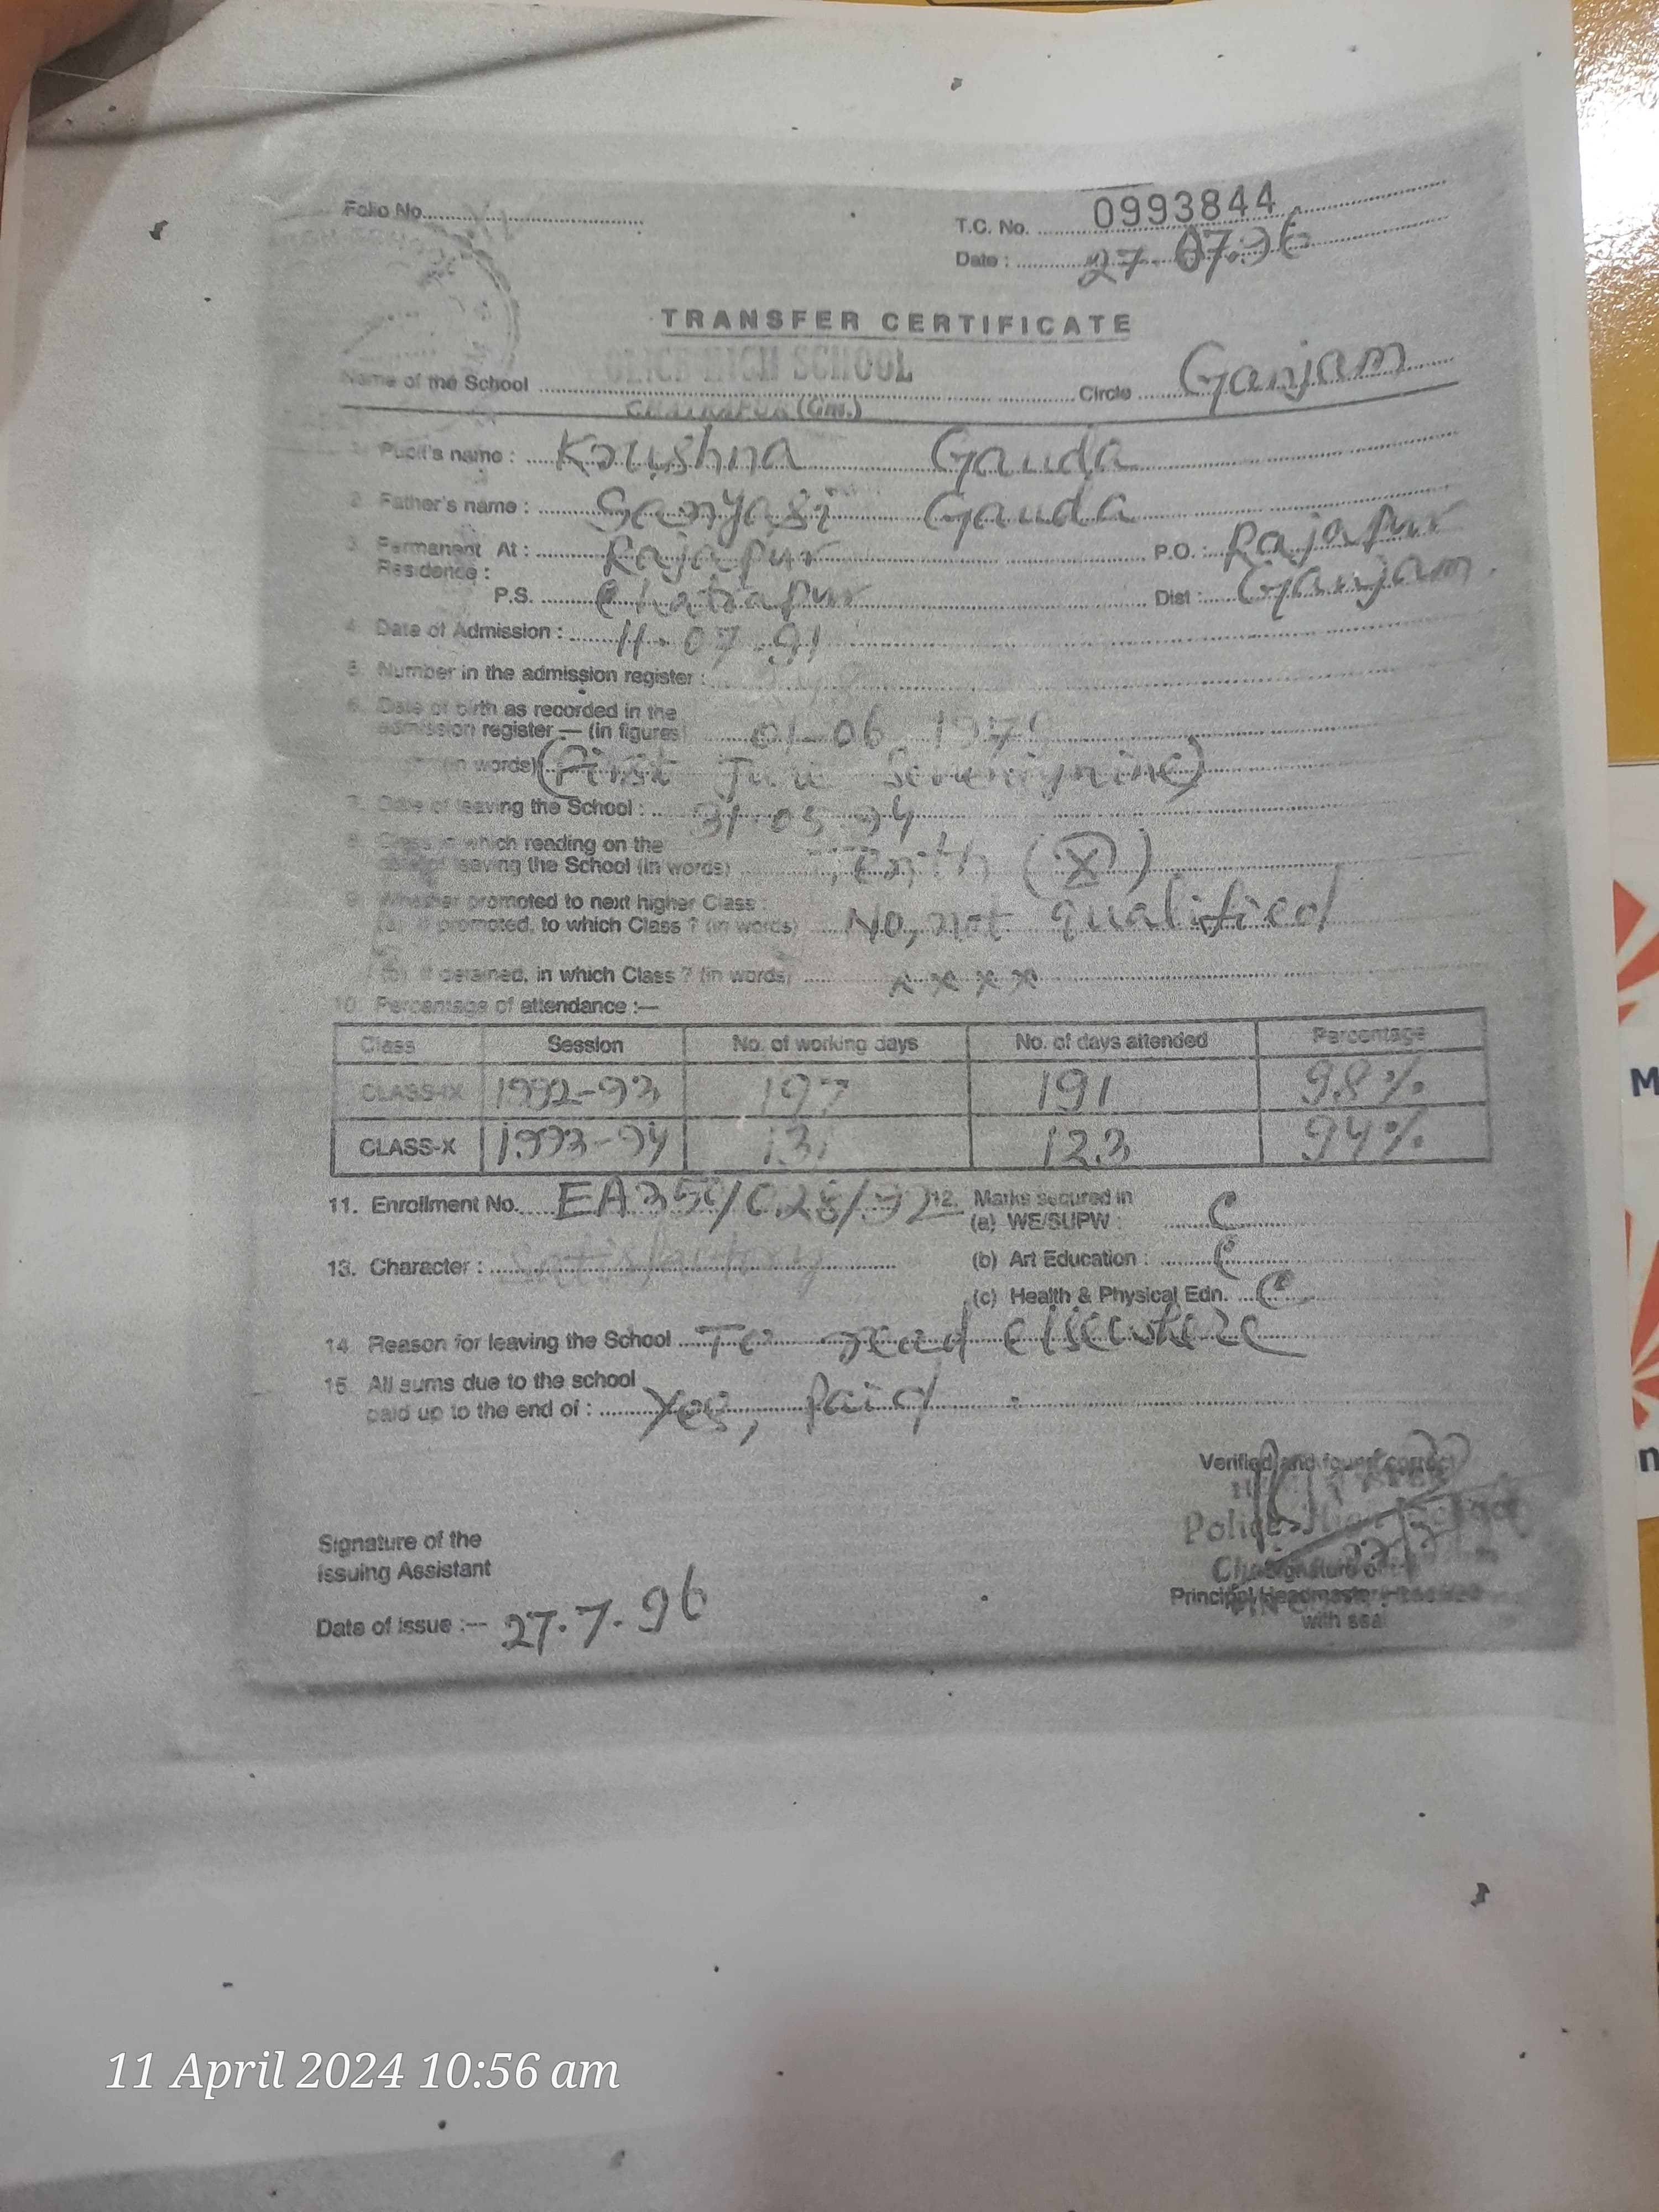 Folio No.
T.C. No. 0993844
Date : 27.07.96
TRANSFER CERTIFICATE
Name of the School POLICE HIGH SCHOOL Circle Ganjam
CHATRAPUR (Gm.)
1. Pupil's name : Krushna Gauda
2. Father's name : Sanyasi Gauda
3. Permanent At : Rajapur P.O. : Rajapur
Residence :
P.S. Chatrapur Dist : Ganjam.
4. Date of Admission : 11.07.91
5. Number in the admission register :
6. Date of birth as recorded in the
admission register — (in figures) 01-06 1979
(in words) (First June Seventynine)
7. Date of leaving the School : 31.05.94
8. Class in which reading on the
date of leaving the School (in words) Tenth (X)
9. Whether promoted to next higher Class :
(a) If promoted, to which Class ? (in words) No, not qualified
(b) If detained, in which Class ? (in words) x x x x
10. Percentage of attendance :—
Class Session No. of working days No. of days attended Percentage
CLASS-IX 1992-93 197 191 98%
CLASS-X 1993-94 131 123 94%
11. Enrollment No. EA350/028/92 12. Marks secured in
(a) WE/SUPW : C
13. Character : Satisfactory (b) Art Education : C
(c) Health & Physical Edn. C
14. Reason for leaving the School To read elsewhere
15. All sums due to the school
paid up to the end of : Yes, paid
Verified and found correct
Police High School
Signature of the
Issuing Assistant
Signature of the
Principal/Headmaster/
with seal
Date of issue :-- 27.7.96
11 April 2024 10:56 am